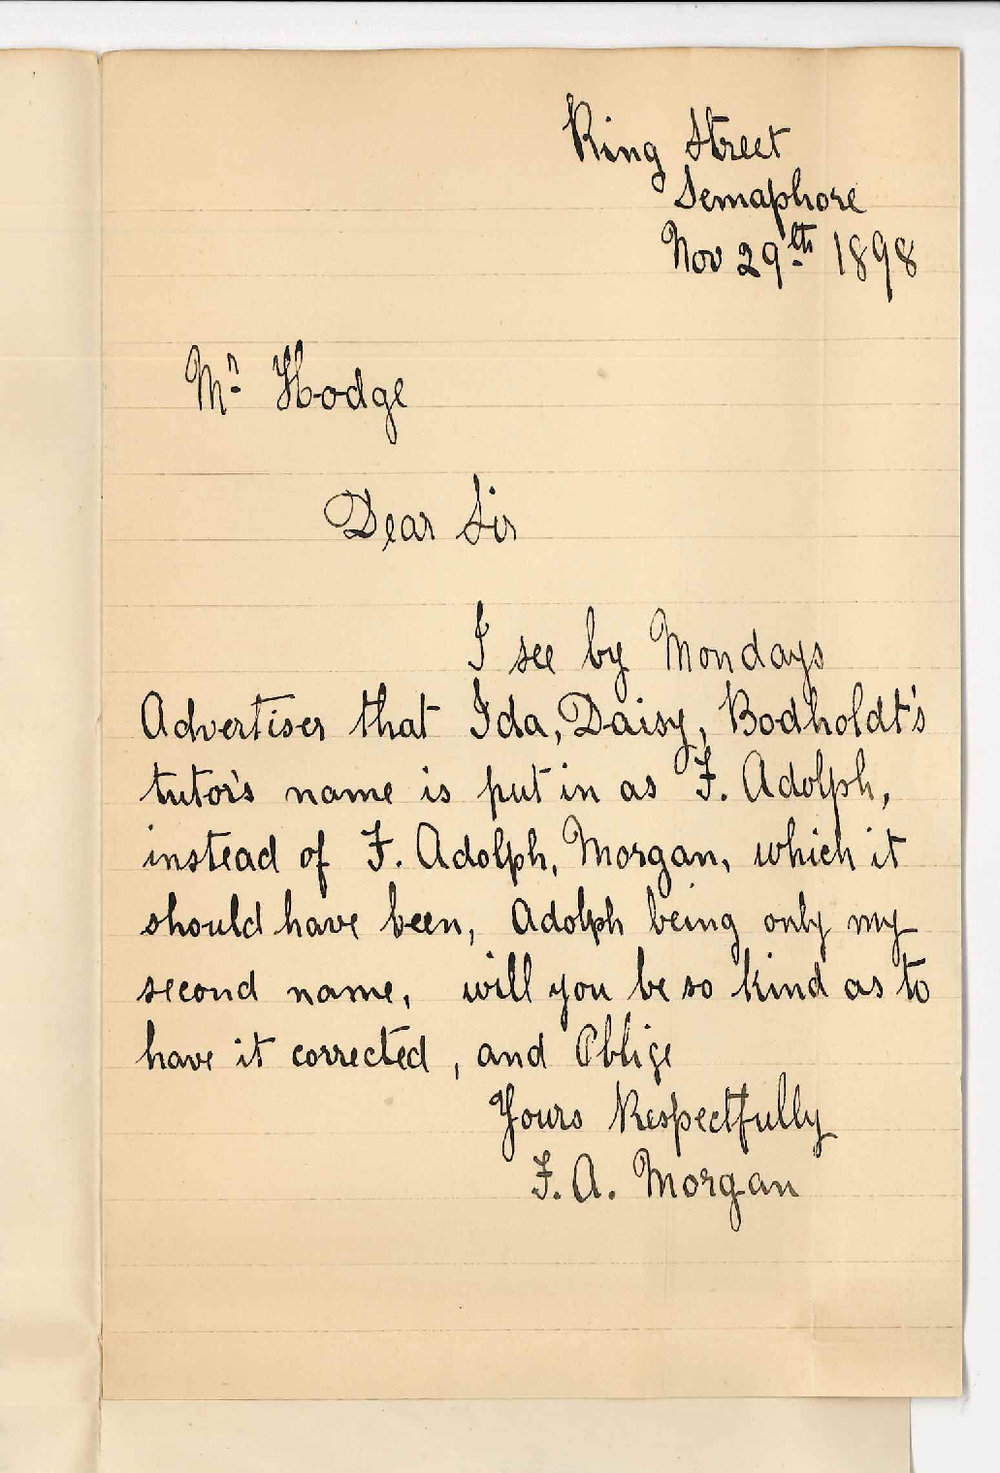 King Street
Semaphore
Nov 29th 1898
Mr Hodge
Dear Sir
I see by Mondays
Advertiser that Ida, Daisy, Bodholdt's
tutor's name is put in as F. Adolph,
instead of F. Adolph, Morgan, which it
should have been, Adolph being only my
second name, will you be so kind as to
have it corrected, and Oblige
Yours Respectfully
F. A. Morgan